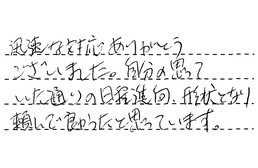 迅速な対応ありがとう
ございました。自分の思って
いた通りの日程進向、形状となり
頼んで良かったと思っています。